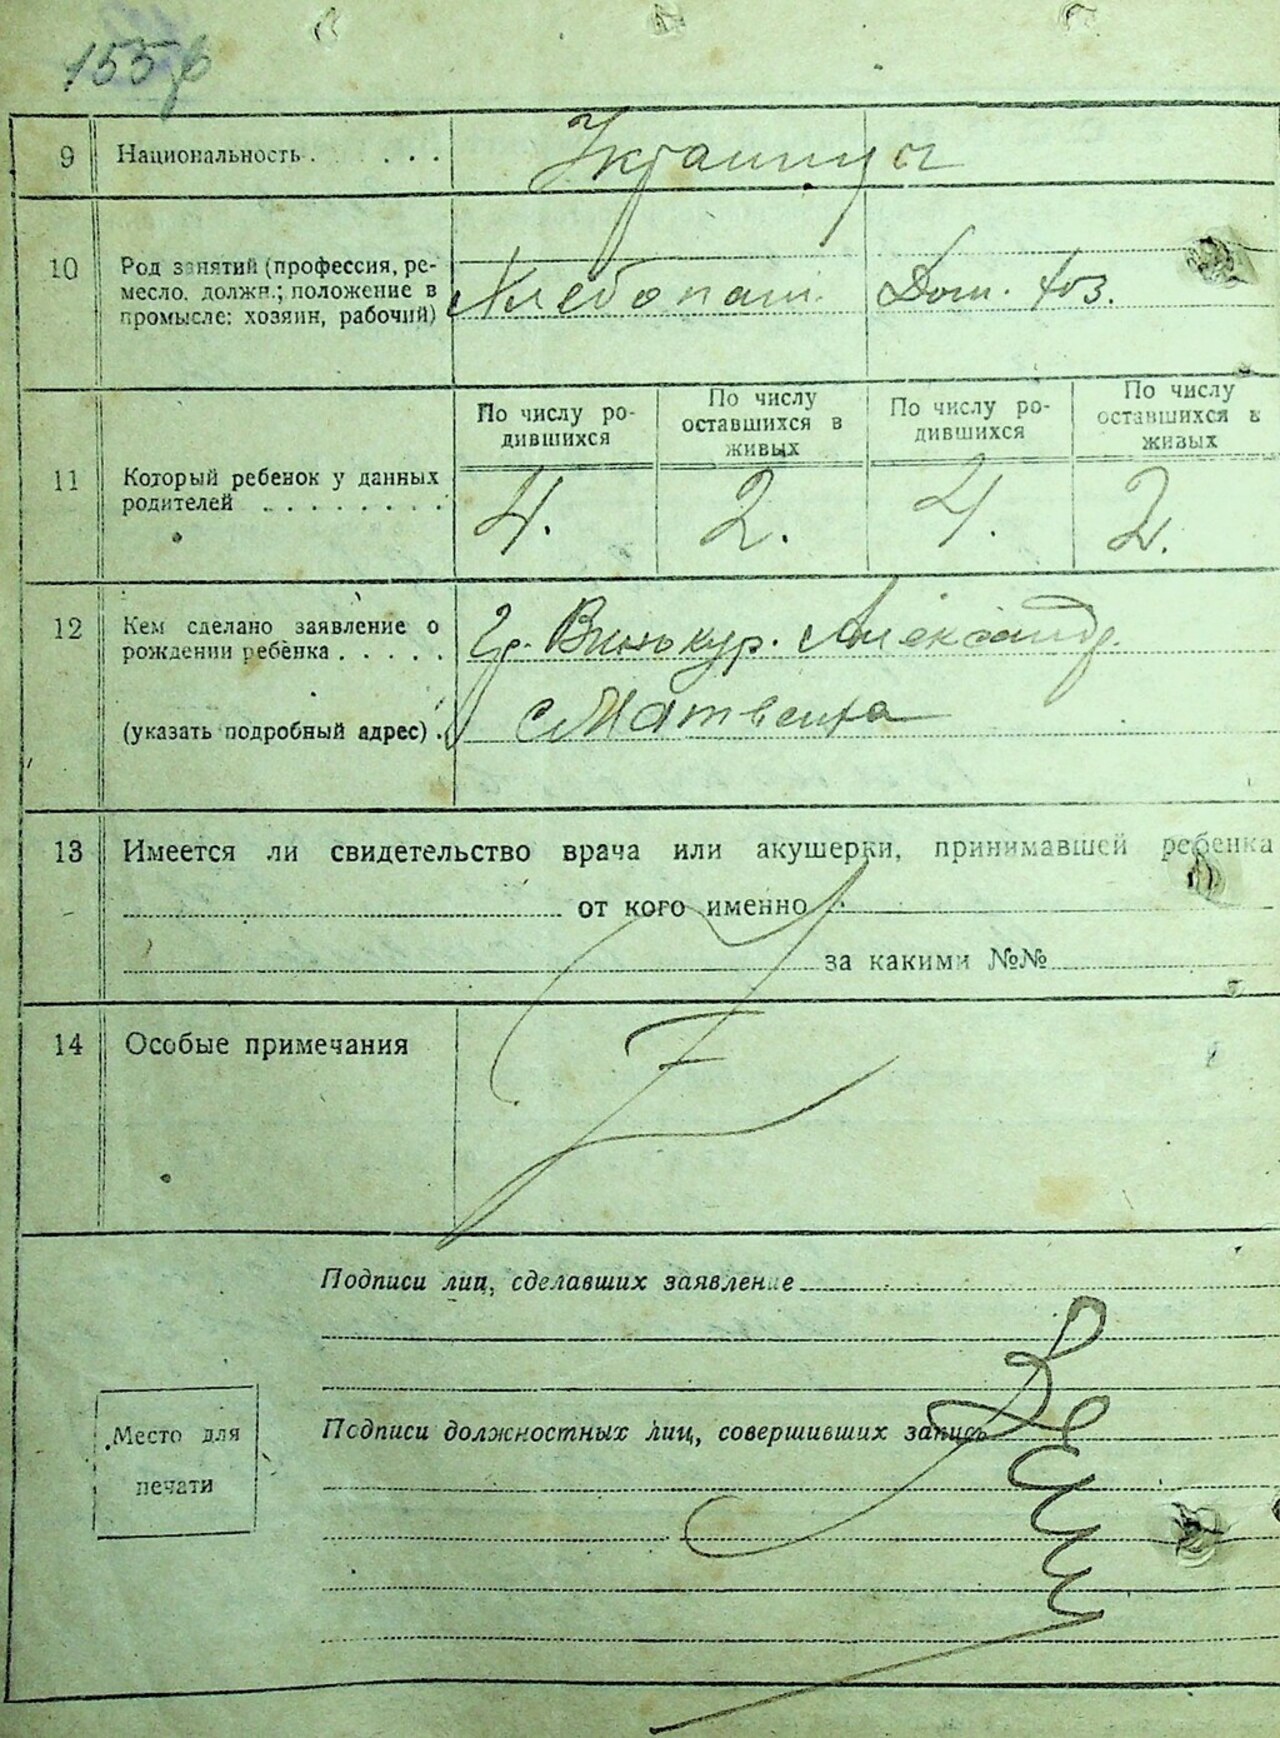 155
9 Национальность . . . . . Украинцы
10 Род занятий (профессия, ре-
месло, должн.; положение в
промысле: хозяин, рабочий)
Хлебопаш. Дом. хоз.
По числу ро-
дившихся
По числу
оставшихся в
живых
По числу ро-
дившихся
По числу
оставшихся в
живых
11 Который ребенок у данных
родителей . . . . . . . .
4. 2. 4. 2.
12 Кем сделано заявление о
рождении ребенка . . . . .
Гр. Винокур. Александр.
(указать подробный адрес) .
с Матвеиха
13 Имеется ли свидетельство врача или акушерки, принимавшей ребенка
от кого именно
за какими №№
14 Особые примечания
Подписи лиц, сделавших заявление
Подписи должностных лиц, совершивших запись
Место для
печати